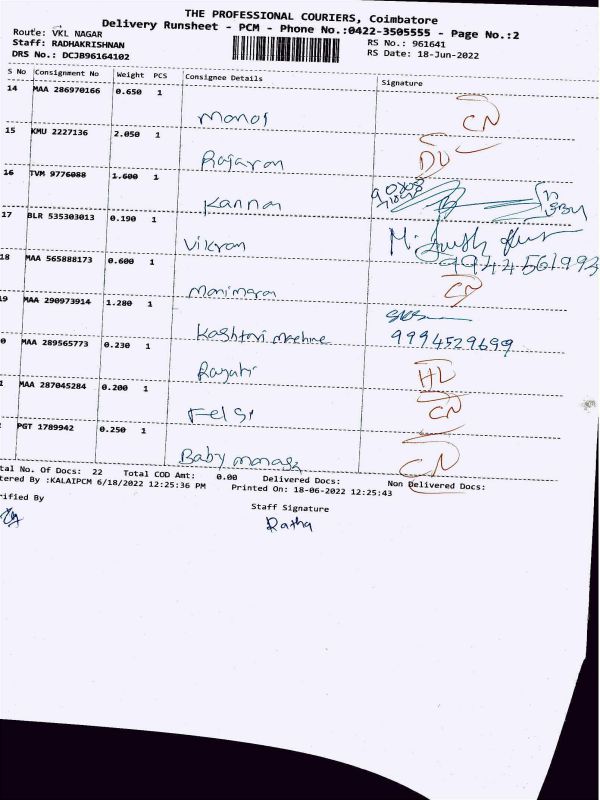 THE PROFESSIONAL COURIERS, Coimbatore
Delivery Runsheet - PCM - Phone No.:0422-3505555 - Page No.:2
Route: VKL NAGAR
Staff: RADHAKRISHNAN RS No.: 961641
DRS No.: DCJB96164102 RS Date: 18-Jun-2022
S No Consignment No Weight PCS Consignee Details Signature
14 MAA 286970166 0.650 1
Manoj CN
15 KMU 2227136 2.050 1
Rajaram DL
16 TVM 9776088 1.600 1
Kannan
17 BLR 535303013 0.190 1
Vikram 9944561993
18 MAA 565888173 0.600 1
Manimaran CN
19 MAA 290973914 1.280 1
Kashtovi machine 9994529699
0 MAA 289565773 0.230 1
HL
1 MAA 287045284 0.200 1
Felsi CN
PGT 1789942 0.250 1
Baby CN
tal No. Of Docs: 22 Total COD Amt: 0.00 Delivered Docs: Non Delivered Docs:
tered By :KALAIPCM 6/18/2022 12:25:36 PM Printed On: 18-06-2022 12:25:43
rified By Staff Signature
Ratha